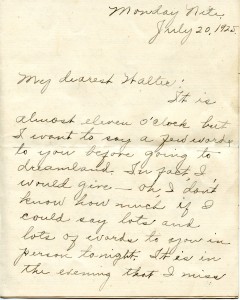 Monday Nite,
July 20, 1925.
My dearest Waltie:
It is
almost eleven o'clock but
I want to say a few words
to you before going to
dreamland. In fact I
would give — oh I don't
know how much if I
could say lots and
lots of words to you in
person tonight. It is in
the evening that I miss